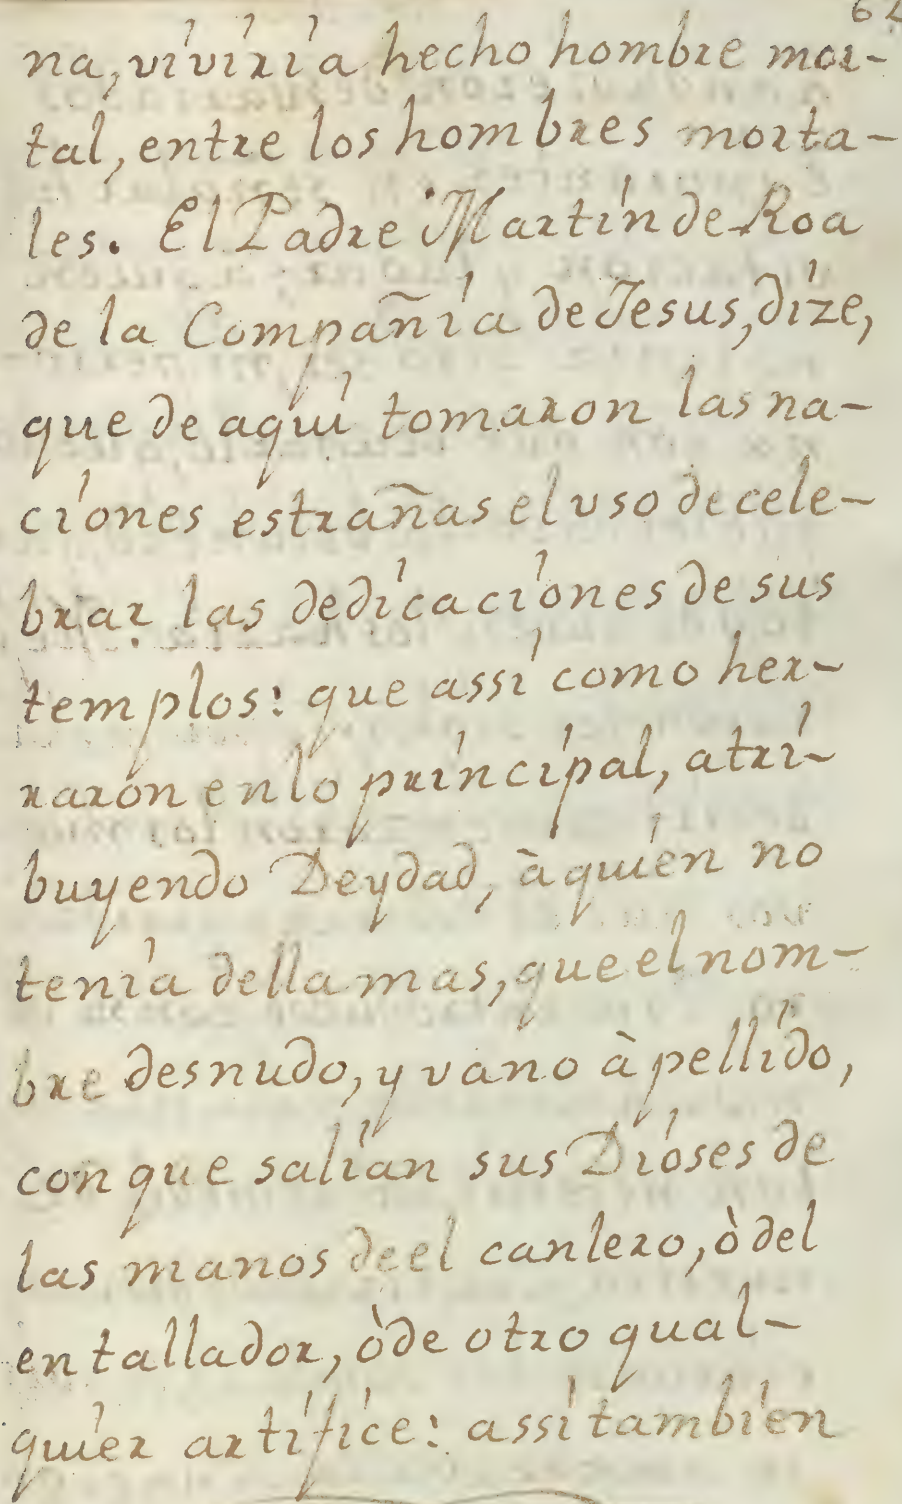 62
na, viviria hecho hombre mor-
tal, entre los hombres morta-
les. El Padre Martin de Roa
de la Compañia de Jesus, dize,
que de aqui tomaron las na-
ciones estrañas el uso de cele-
brar las dedicaciones de sus
templos: que assi como her-
raron en lo principal, atri-
buyendo Deydad, à quien no
tenia della mas, que el nom-
bre desnudo, y vano àpellido,
con que salian sus Dioses de
las manos de el canlero, ò del
entallador, ò de otro qual-
quier artifice: assi tambien